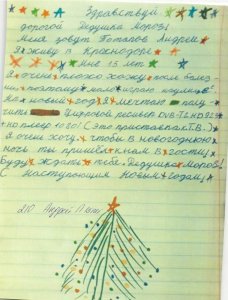 Здравствуй
дорогой Дедушка Мороз!
Меня зовут Потапов Андрей
Я живу в Краснодаре
Мне 13 лет
Я очень плохо хожу после болез
ни, поэтому мало играю
На новый год я мечтаю полу
чить цифровой ресивер DVB-T2
плеер 1080! (это приставка к Т.В.)
Я очень хочу чтобы в новогоднюю
ночь ты пришёл к нам в гости
Буду ждать тебя Дедушка Мороз!
С Наступающим Новым годом!
Андрей